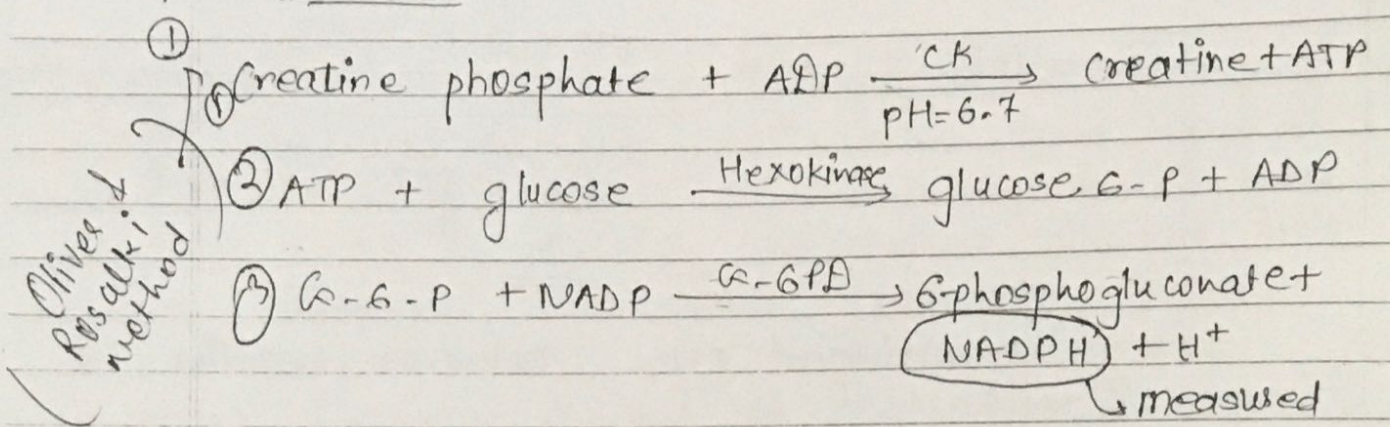 ①
① Creatine phosphate + ADP CK pH=6.7 → Creatine + ATP
② ATP + glucose Hexokinase → glucose 6-P + ADP
③ G-6-P + NADP G-6PD → 6-phosphogluconate +
NADPH + H⁺
measured
Oliver &
Rosalki
method